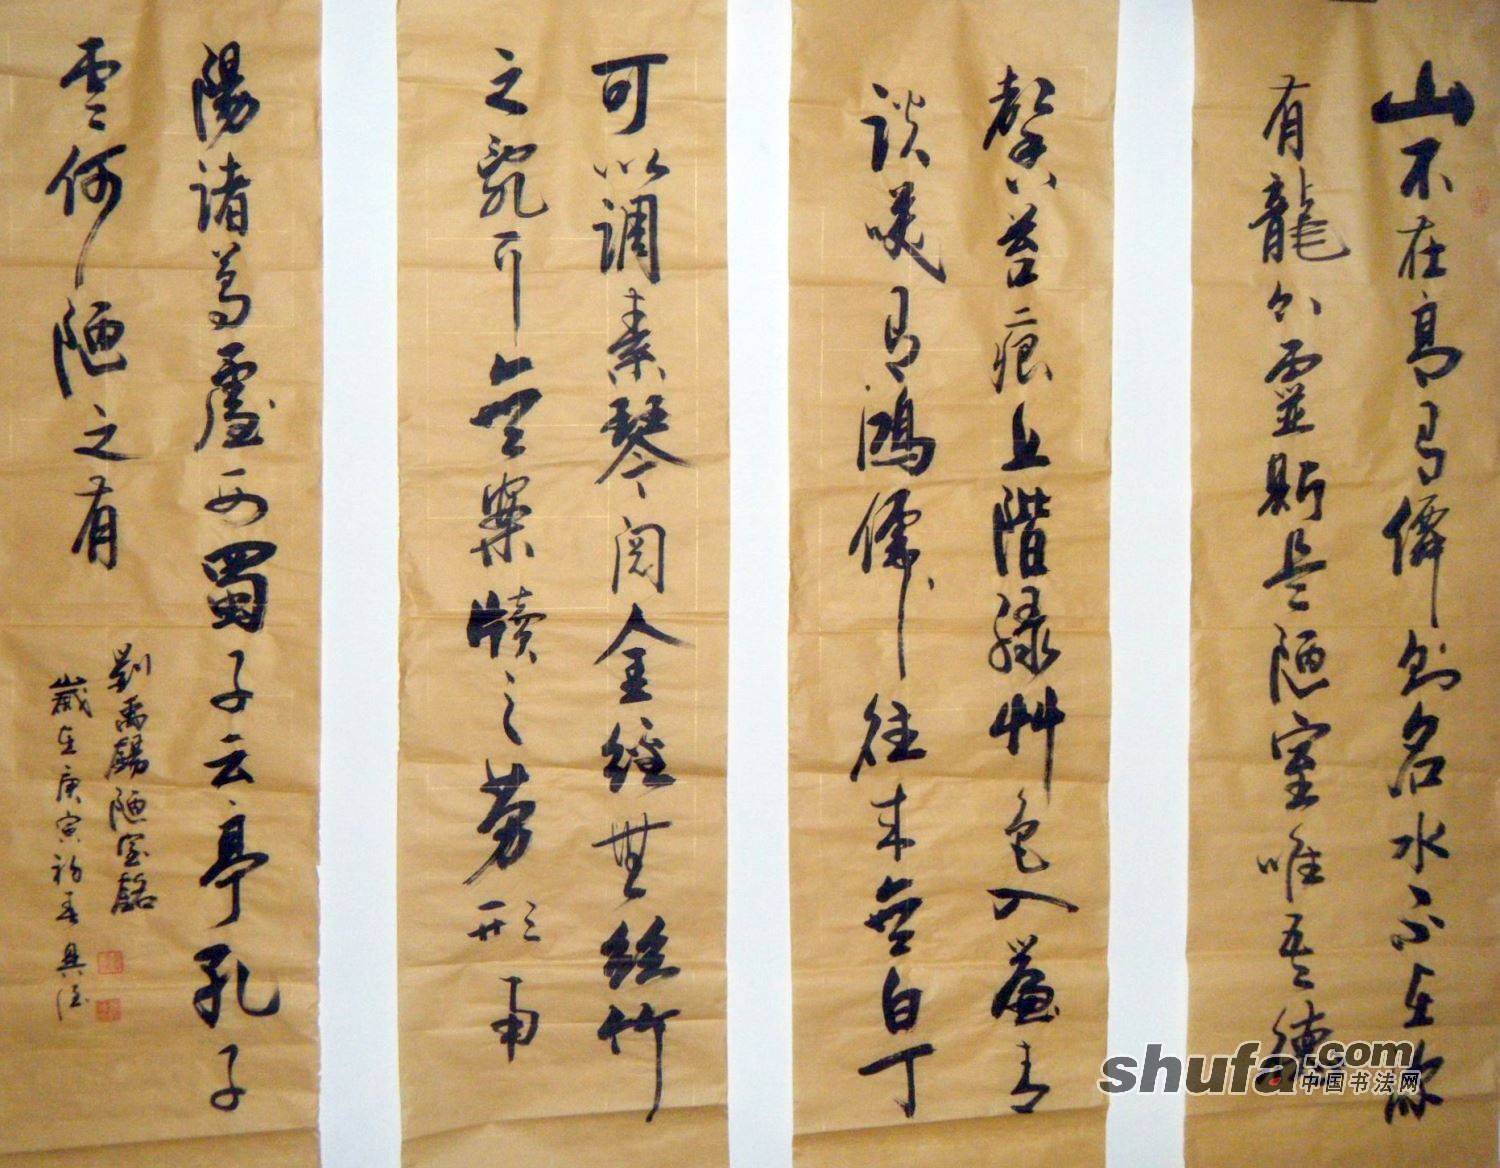 山不在高有僊則名水不在深
有龍則靈斯是陋室唯吾德
馨苔痕上階緑艸色入簾青
談笑有鴻儒往来無白丁
可以調素琴阅金經無絲竹
之亂耳無案牍之劳形南
陽諸葛廬西蜀子云亭孔子
雲何陋之有
劉禹錫陋室銘
歲在庚寅初春
shufa.com
中国书法网